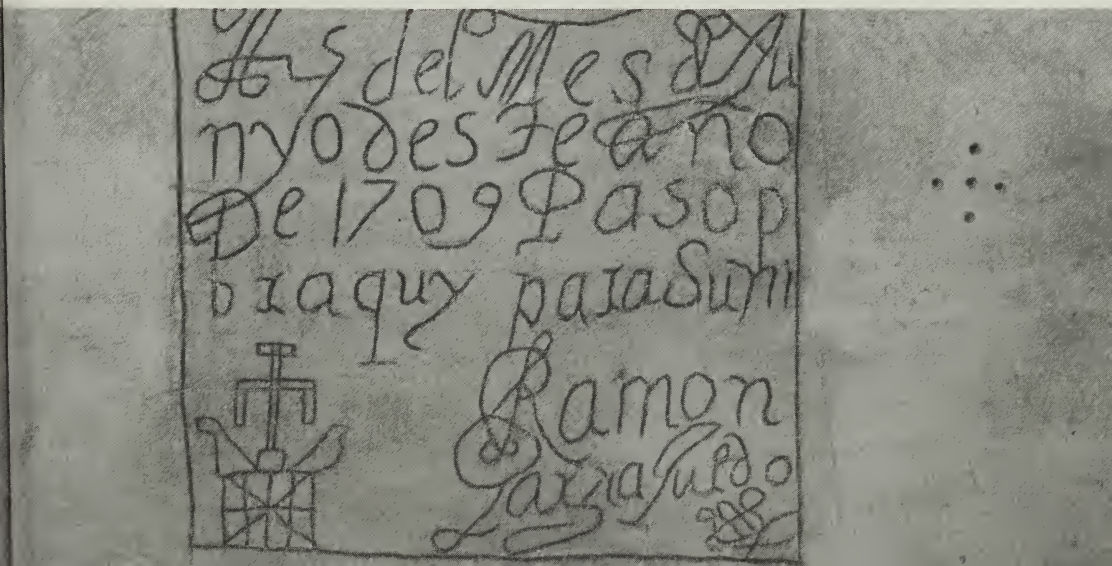 A 5 del Mes D Ju
nyo desTe año
De 1709 Paso p
or aquy para Suñi
Ramon
Garzia Jurdo